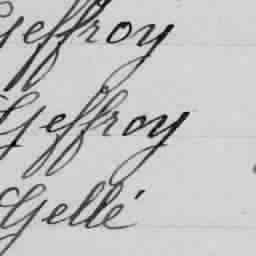 Geffroy
Geffroy
Gellé